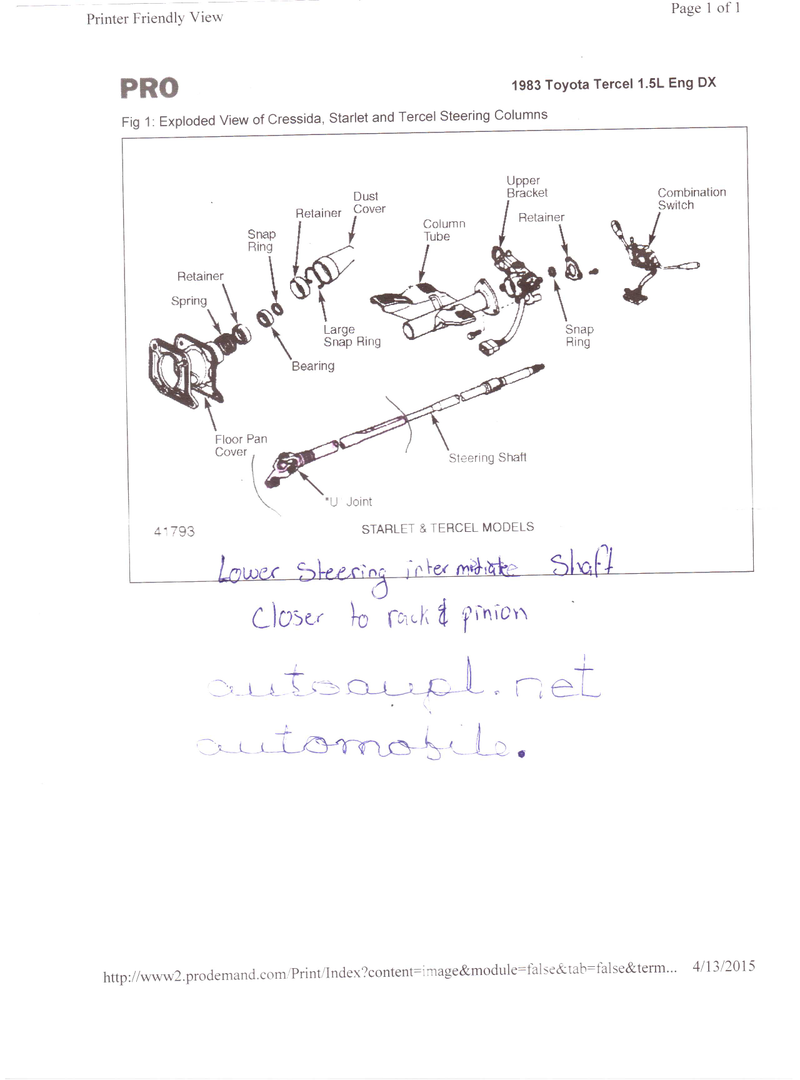 Printer Friendly View
Page 1 of 1
PRO
1983 Toyota Tercel 1.5L Eng DX
Fig 1: Exploded View of Cressida, Starlet and Tercel Steering Columns
Upper
Bracket
Combination
Switch
Dust
Cover
Retainer
Retainer
Column
Tube
Snap
Ring
Retainer
Spring
Large
Snap Ring
Snap
Ring
Bearing
Floor Pan
Cover
Steering Shaft
*U Joint
41793
STARLET & TERCEL MODELS
Lower Steering inter mediate Shaft
Closer to rack & pinion
autoaupl.net
automobile.
http://www2.prodemand.com/Print/Index?content=image&module=false&tab=false&term... 4/13/2015